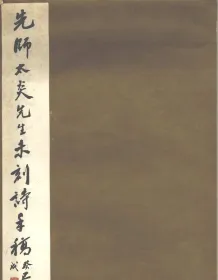 先師太炎先生未刻詩手稿